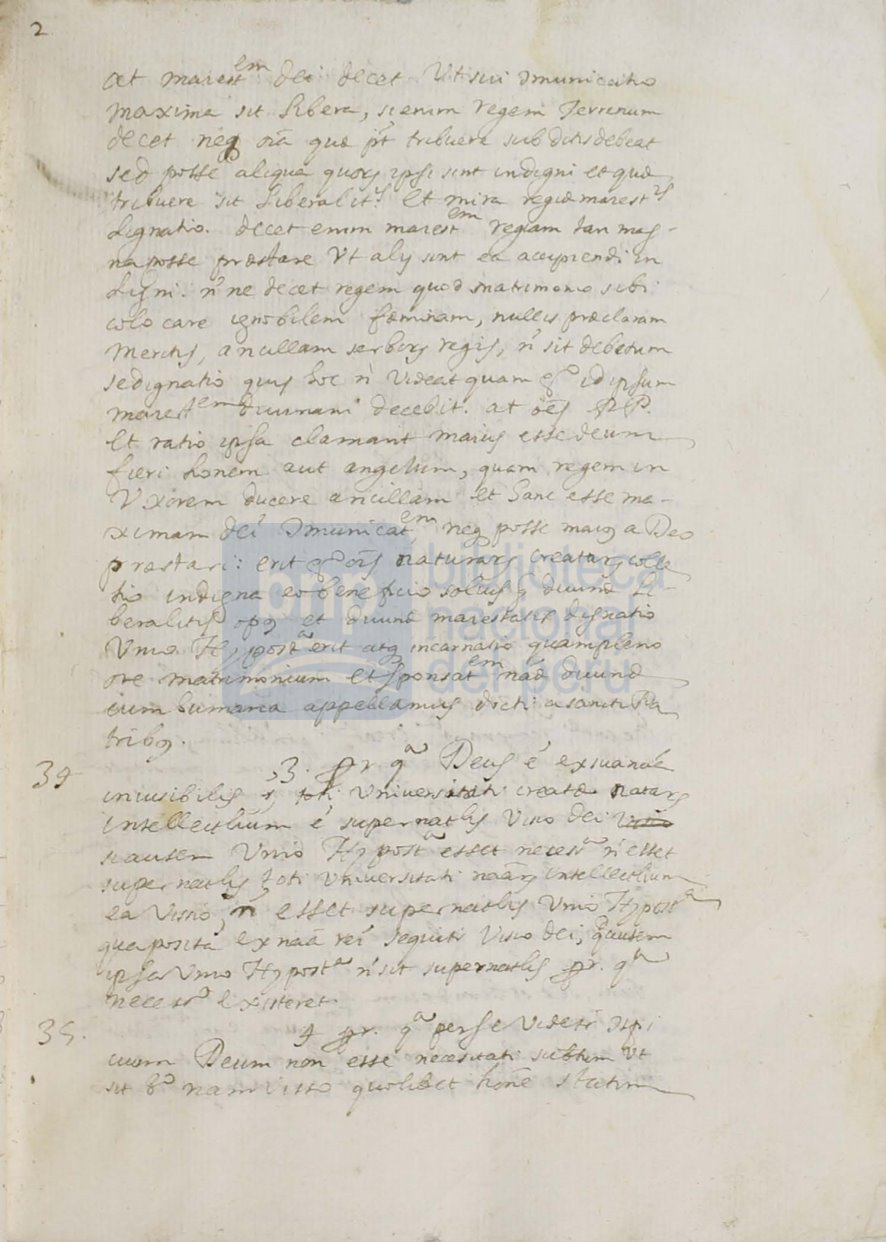 2
at maiest^em dei decet Ut sui omunicatio
maxima sit libera, si enim regem Terrenum
decet neq oia quæ pt tribuere subditis debeat
sed posse aliqua quors ipsi sint indigni et quæ
tribuere sit liberalit^s et mira regiæ maiest^is
dignatio. decet enim maiest^em regiam tan mag-
na posse præstare Ut alij sint ea accipiendi in
digni. ñ ne decet regem quod matrimonio sibi
colocare ignobilem fæminam, nullis præclaram
meritis, ancillam serbors regis, ñ sit debetum
sed ignatio quis hoc ñ Videat quam g^o id ipsum
maiest^em diuinam decebit. at oẽs PP.
et ratio ipsa clamant maius esse deum
fieri honem aut angelum, quam regem in
Uxorem ducere ancillam et hanc esse ma-
ximam deí omunicat^em neq posse maius a Deo
præstari: erit g^o ois naturars creatars colle
tio indigna eo beneficio solius q diuinæ Li-
beralitis opus et diuinæ maiestatis dignatio
Unio Hypost^a erit atq incarnatio quam pleno
ore matrimonium et sponsat^em naæ diuinæ
cum humana appellamus docti a sanctis Pa
tribus.
34 3. Pr. q^a Deus é ex sua naa
inuisibilis toti Universitati creatæ natars
intellectlium é supernatlis Visio dei
si autem Unio Hypost^a esset necess^a ñ esset
supernatlis toti Universitati naars intellectlium
ea Visio, ñ esset supernatlis Unio Hypost^a
qua posita ex naa rei sequitr Visio dei; quautem
ipsa Unio Hypost^a ñ sit supernatlis pr. q^a
necess^o existeret.
35. 4 pr. q^a per se Videtr
cuom Deum non esse necesitati subtum Ut
sit b^o nam uisso quolibet hone statim
bnp biblioteca
nacional
del perú